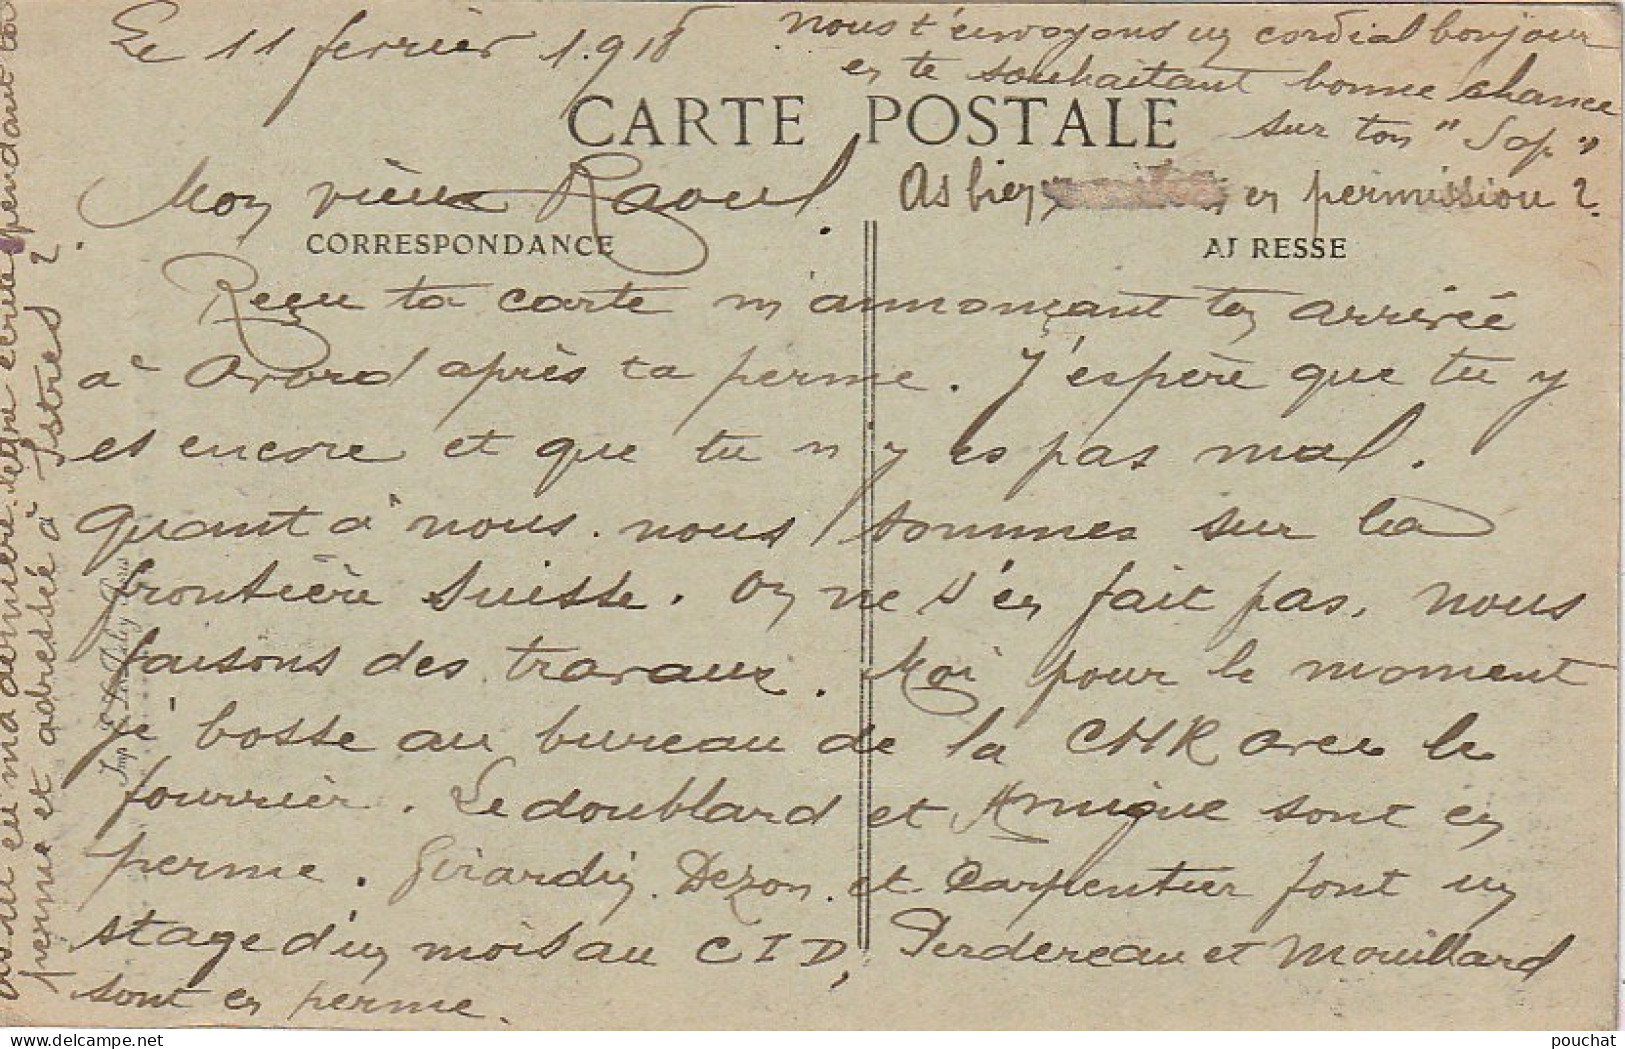 Le 11 fevrier 1918
nous t'envoyons un cordial bonjour
en te souhaitant bonne chance
sur ton "Sop"
CARTE POSTALE
Mon vieux Raoul.
As bien en permission ?
CORRESPONDANCE
ADRESSE
Reçu ta carte m'annonçant ton arrivée
à Avord après ta perme. J'espère que tu y
es encore et que tu n'y es pas mal.
Quant à nous. nous sommes sur la
frontière Suisse. On ne s'en fait pas, nous
faisons des travaux. Moi pour le moment
je bosse au bureau de la CHR avec le
fourrier. Ledoublard et Amique sont en
perme. Girardin. Dezon. et Carpentier font un
stage d'un mois au CID, Perdereau et Mouillard
sont en perme.
As tu eu ma dernière lettre écrite pendant ta
perme et adressée à Istres ?
Imp. Paris
pouchat